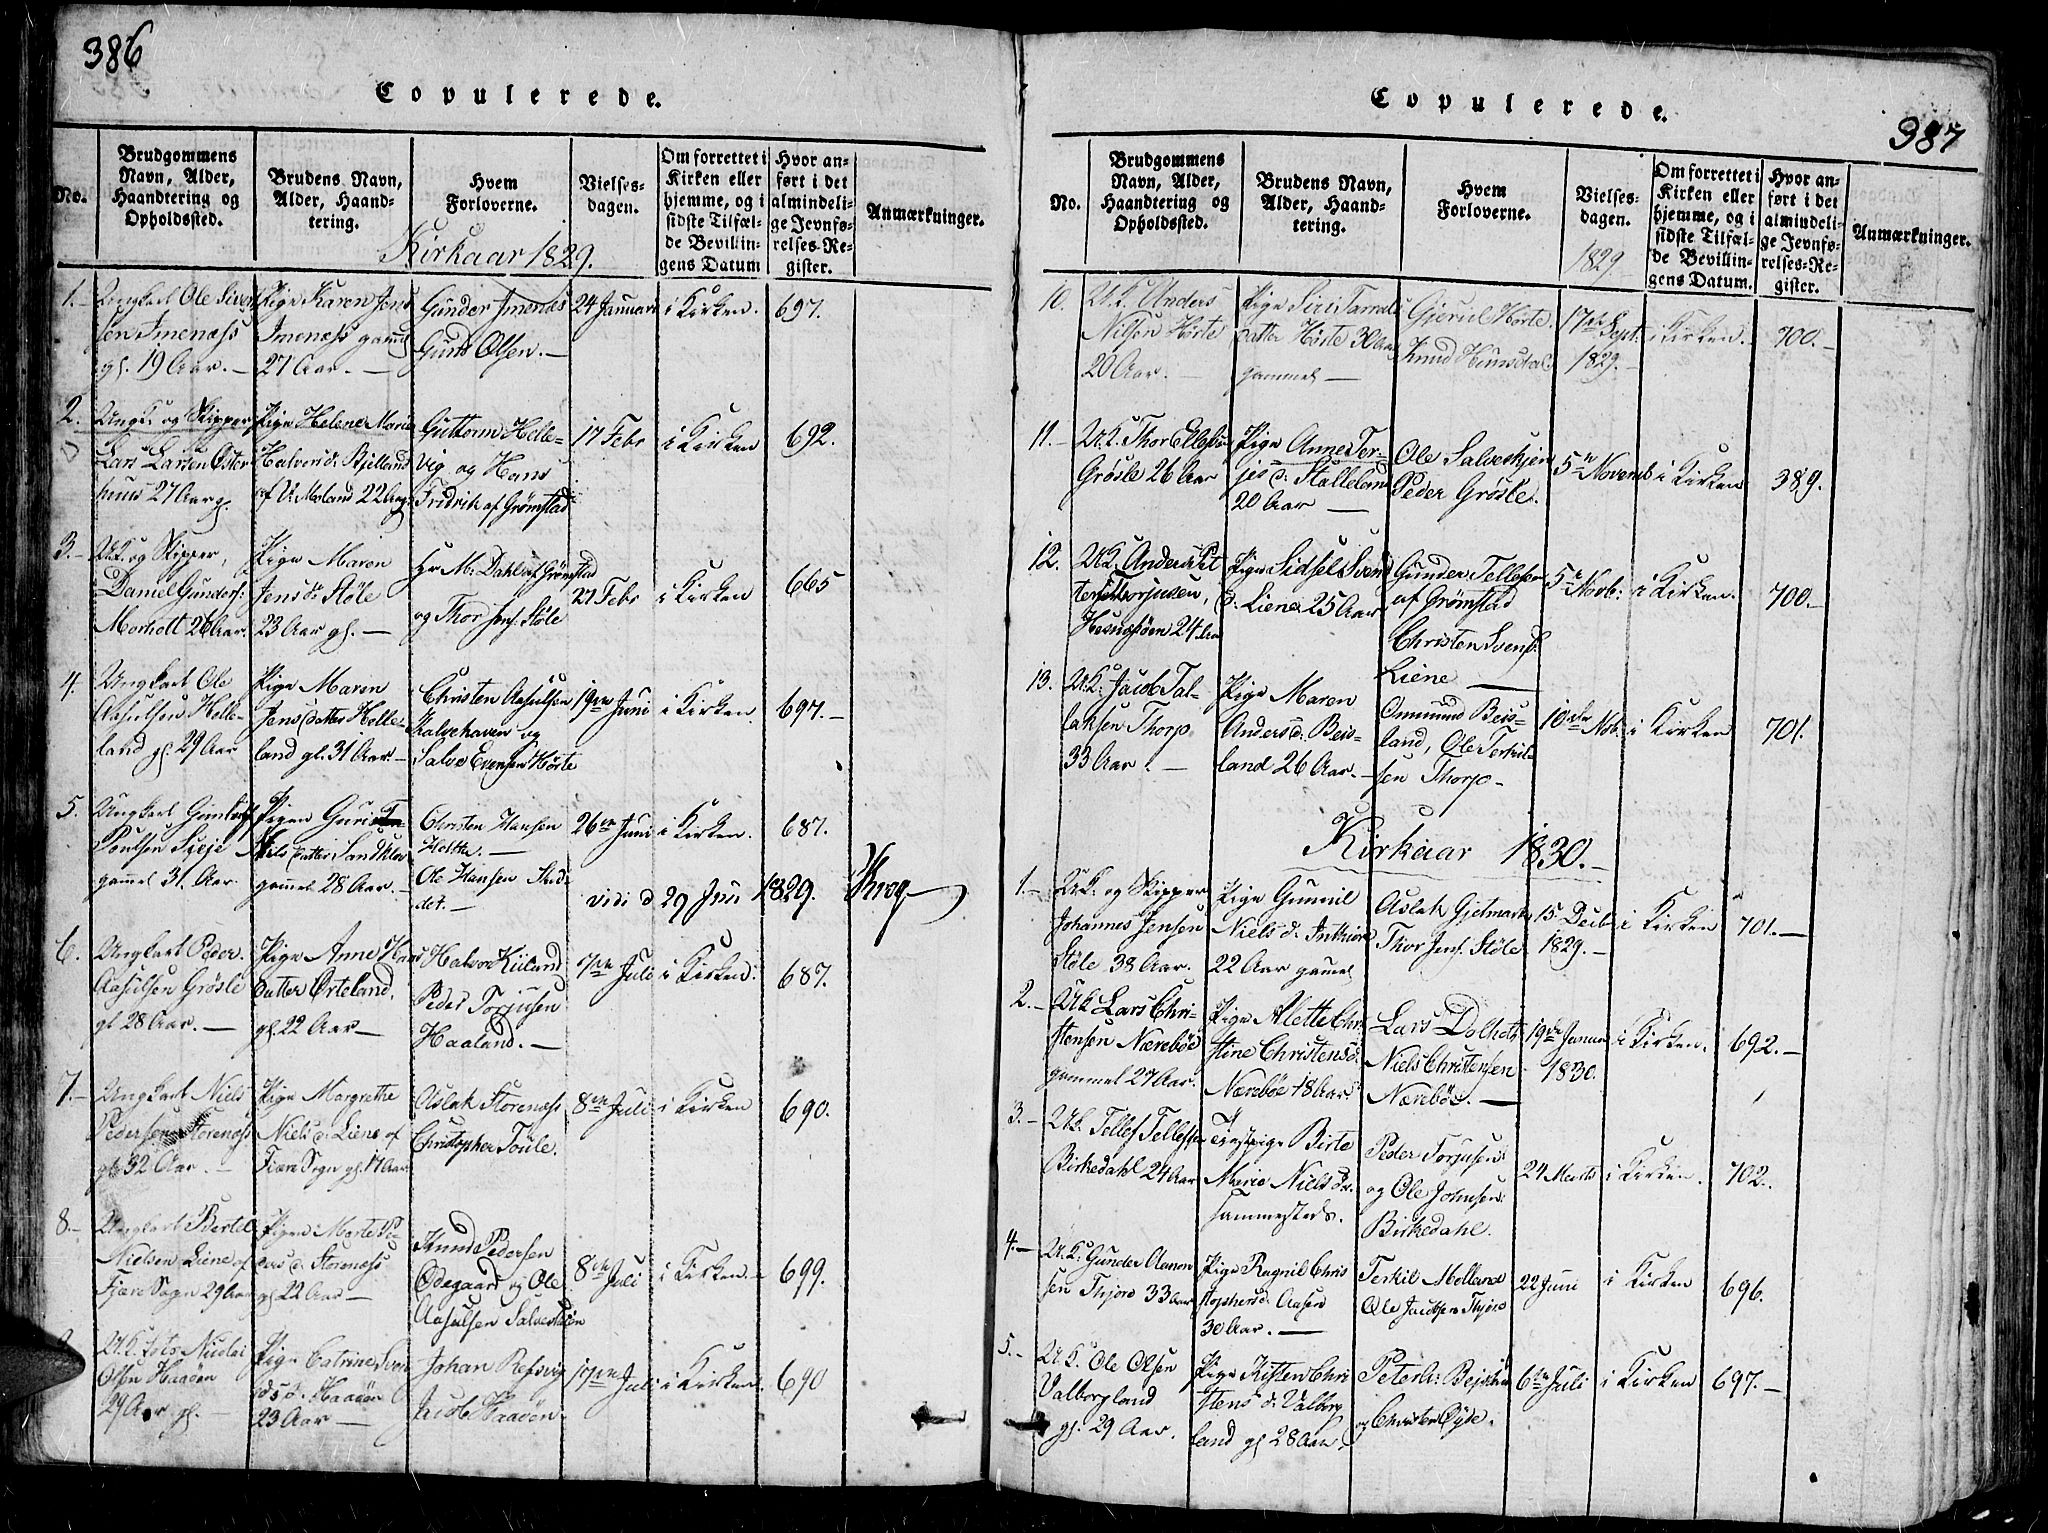 386
Copulerede.
No.
Brudgommens Navn, Alder, Haandtering og Opholdssted.
Brudens Navn, Alder, Haandtering.
Hvem Forloverne.
Vielsesdagen.
Om forrettet i Kirken eller hjemme, og i sidste Tilfælde Bevillingens Datum
Hvor anført i det almindelige Jevnførelses-Register.
Anmærkninger.
Kirkaar 1829.
1.
Ungkarl Ole
sen Imenæss
gl. 19 Aar.
Pige Karen Jens
Imenæss gammel
27 Aar.
Gunder Imenæs
Olsen.
24 Januari
i Kirken.
697.
2.
Ungk. og Skipper
Lars Larsen Øster
huus 27 Aar g.
Pige Helene Marie
Halvors d. Kjelland
af V. Moland 22 Aar
Guttorm Helle-
vig og Hans
Fridrik af Grømstad
17 Febr
i Kirken
692.
3.
U.K. og Skipper,
Daniel Gunders:
Morholt 26 Aar.
Pige Maren
Jens d. Støle
23 Aar gl.
Hr M. Dahl af Grømstad
og Thor Jens. Støle
27 Febr
i Kirken
665
4.
Ungkarl Ole
Aasulsen Helle-
land gl. 29 Aar
Pige Maren
Jensdatter Helle-
land gl. 31 Aar.
Christen Aasulsen
Kalvehaven og
Salve Evensen Hørte
19de Juni
i Kirken.
697.
5.
Ungkarl
Poulsen
gammel 31. Aar.
Pigen Guri
Nils datter Sandklev
gammel 28 Aar.
Christen Hansen
Ole Hansen Stud-
det.
26de Juni
i Kirken.
687.
vidi d 29 Juni 1829. Krog
6.
Ungkarl Peder
Aasulsen Grøsle
gl 28 Aar.
Pige Anne Hans
datter Ørteland.
gl. 22 Aar
Halvor Kiland
Peder Torjusen
Haaland.
7de Juli
i Kirken.
687.
7.
Ungkarl Niels
Pedersen Storenæss
gl. 32 Aar.
Pige Margrethe
Niels d. Liene af
Fjære Sogn gl. 17 Aar
Aslak Storenæss
Christopher Toule.
8de Juli
i Kirken
690.
8.
Ungkarl Bertel
Nielsen Liene af
Fjære Sogn 29 Aar
Pigen Marte Pe-
ders d. Storenæss
gl. 22 Aar
Knud Pedersen
Ødegaard og Ole
Aasulsen
8de Juli
i Kirken.
699.
U.K. Lots Nicolai
Olsen Haaøen
29 Aar gl.
Pige Catrine Sven
ds d. Haaøen
23 Aar
Johan Refsvig
Jacob Haaøen.
17de Juli
i Kirken.
690
387
Copulerede.
No.
Brudgommens Navn, Alder, Haandtering og Opholdssted.
Brudens Navn, Alder, Haandtering.
Hvem Forloverne.
Vielsesdagen.
1829.
Om forrettet i Kirken eller hjemme, og i sidste Tilfælde Bevillingens Datum.
Hvor anført i det almindelige Jevnførelses-Register.
Anmærkninger.
10.
U.K. Anders
Nilsen Hørte
20 Aar.
Pige Siri Tarral
datter Hørte 30 Aar
gammel
Gjerul Hørte.
Knud Hunsdal
17de Sept.
1829.
i Kirken.
700.
11.
U.K. Thor Ellefsen
Grøsle 26 Aar
Pige Anne Ter-
jes d. Stalleland
20 Aar
Ole Salveskjen
Peder Grøsle.
5te Novemb
i Kirken
389.
12.
U.K. Anders
Torjusen,
Hesnæsøen 24 Aar
Pige Sidsel Svend
d. Liene 25 Aar
Gunder Tellefsen
af Grømstad
Christen Svends.
Liene
5te Novb:
i Kirken.
700.
13.
U.K. Jacob Tal-
laksen Thorp
33 Aar.
Pige Maren
Anders d. Beis-
land 26 Aar.
Omund Beis-
land, Ole Terkil-
sen Thorp
10de Nob.
i Kirken
701.
Kirkaar 1830.
1.
U.K. og Skipper
Johannes Jensen
Støle 38 Aar.
Pige Gunnil
Niels d. Inthiøre
22 Aar gamel
Aslak Gjetmark
Thor Jens. Støle
15 Decbr
1829.
i Kirken
701.
2.
U.K Lars Chri-
stensen Nærebøe
gammel 27 Aar.
Pige Alette Chri
stine Christens d.
Nærebøe 18 Aar.
Lars Dolholt
Niels Christensen
Nærebøe.
19de Januar
1830.
i Kirken.
692.
3.
U.K. Tellef Tellefsen
Birkedahl 24 Aar
Tjenstpige Birte
Marie Niels dr.
sammesteds.
Peder Torjusen:
og Ole Johnsen:
Birkedahl.
24 Marts
i Kirken.
702.
4.
U.K. Gunder Aanon
sen Thjøre 33 Aar
Pige Ragnil Chris
stophersd. Aasen
30 Aar.
Terkil Molland
Ole Jacobsen Thjøre
22 Juni
i Kirken
696.
5.
U.K. Ole Olsen
Valborgland
gl. 29 Aar.
Pige Kisten Chri
stens d. Valborg
land gl 28 Aar.
og Christen Øyde.
6te Juli
i Kirken
697.